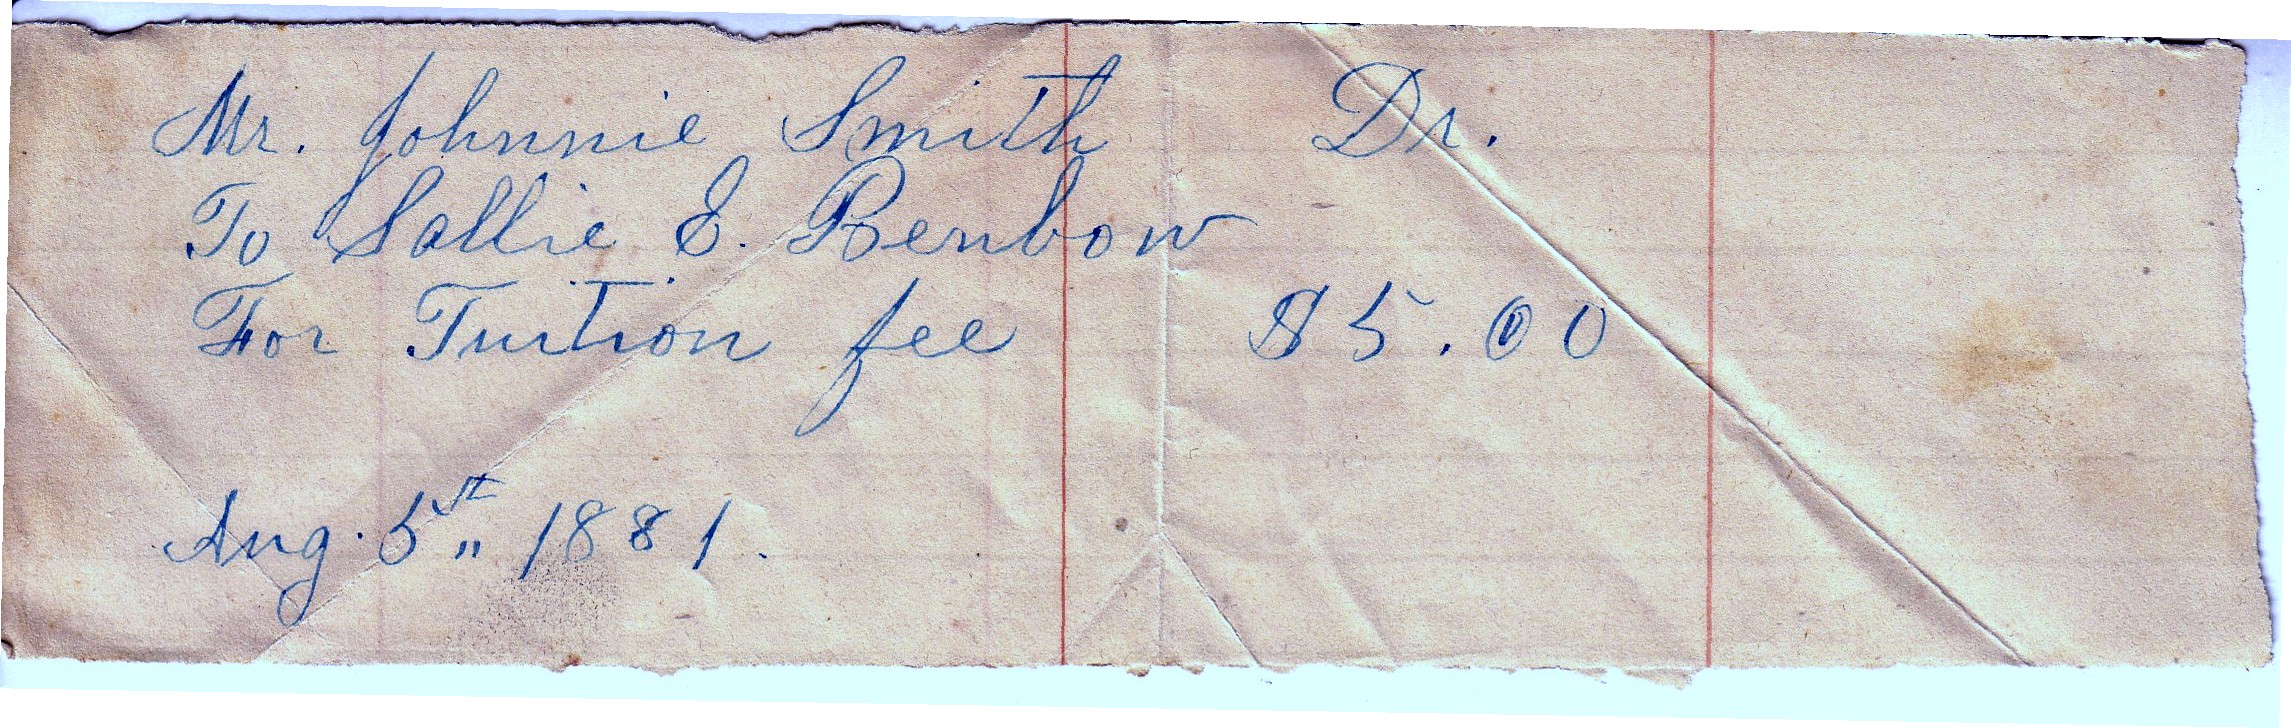 Mr. Johnnie Smith Dr.
To Sallie E. Benbow
For Tuition fee $5.00
Aug. 5th" 1881.